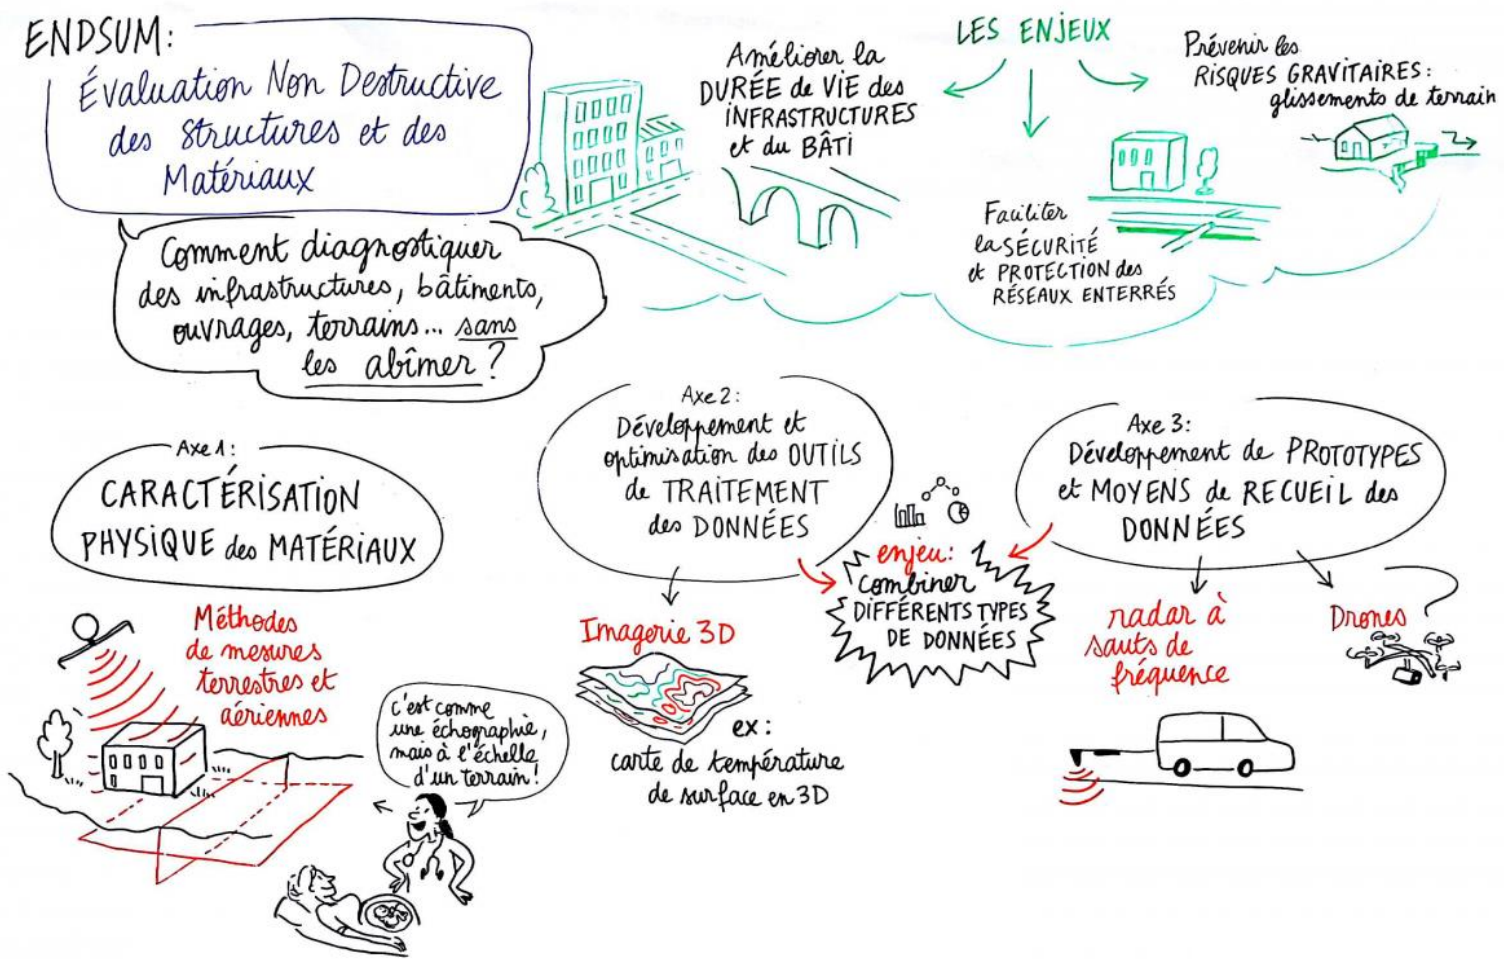 ENDSUM:
Évaluation Non Destructive
des structures et des
Matériaux
Comment diagnostiquer
des infrastructures, bâtiments,
ouvrages, terrains... sans
les abîmer ?
LES ENJEUX
Améliorer la
DURÉE de VIE des
INFRASTRUCTURES
et du BÂTI
Faciliter
la SÉCURITÉ
et PROTECTION des
RÉSEAUX ENTERRÉS
Prévenir les
RISQUES GRAVITAIRES :
glissements de terrain
Axe 1 :
CARACTÉRISATION
PHYSIQUE des MATÉRIAUX
Méthodes
de mesures
terrestres et
aériennes
c'est comme
une échographie,
mais à l'échelle
d'un terrain !
Axe 2 :
Développement et
optimisation des OUTILS
de TRAITEMENT
des DONNÉES
Imagerie 3D
ex :
carte de température
de surface en 3D
enjeu :
combiner
DIFFÉRENTS TYPES
DE DONNÉES
Axe 3 :
Développement de PROTOTYPES
et MOYENS de RECUEIL des
DONNÉES
radar à
sauts de
fréquence
Drones